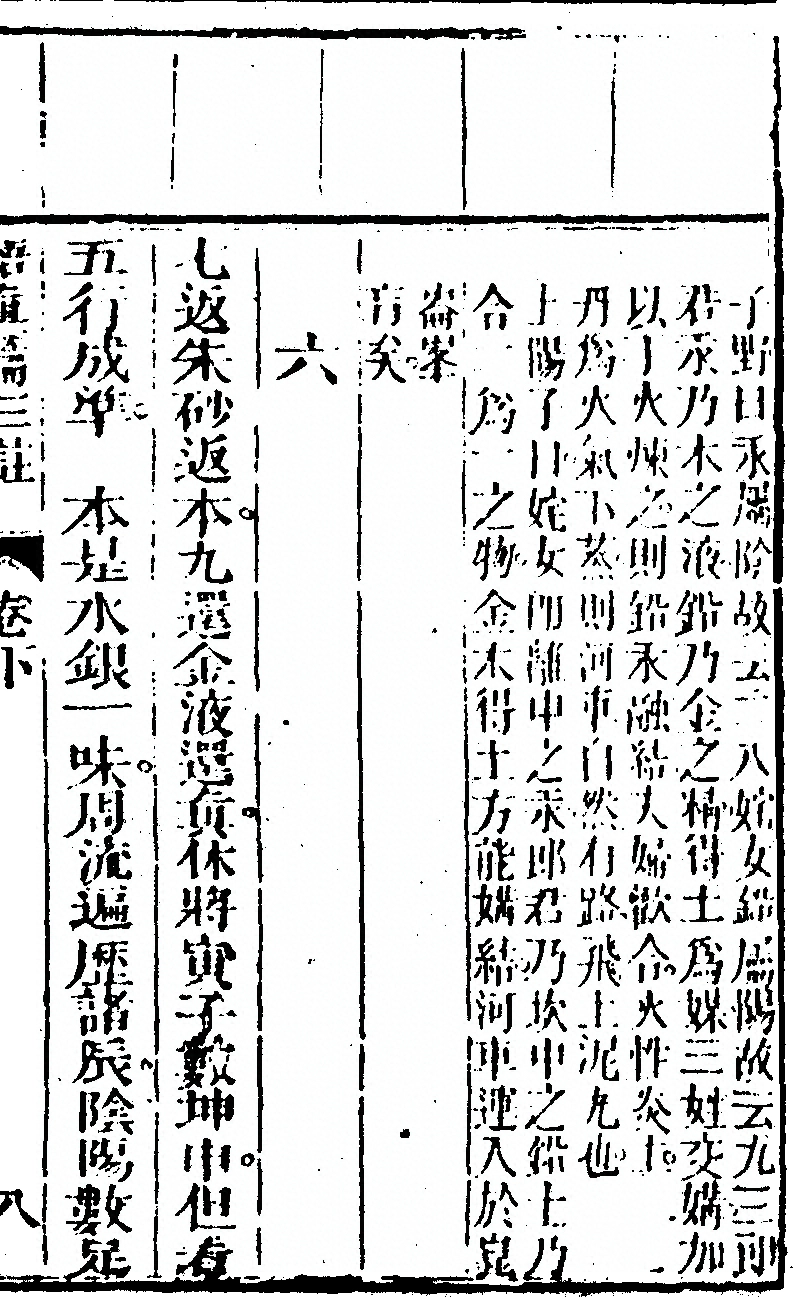 子野曰汞屬陰故云二八姹女鉛屬陽故云九三郎
君汞乃木之液鉛乃金之精得土爲媒三姓交媾加
以丁火煉之則鉛汞融結夫婦歡合火性炎上一
丹爲火氣下蒸則河車自然有路飛上泥丸也
上陽子曰姹女卽離中之汞郎君乃坎中之鉛土乃
合一爲一之物金木得土方能媾結河車運入於崑
崙
肓矣
六
七返朱砂返本九還金液還真休將寅子數坤申但看
五行成準 本是水銀一味周流遍歷諸辰陰陽數足
悟真篇三註
卷下
八